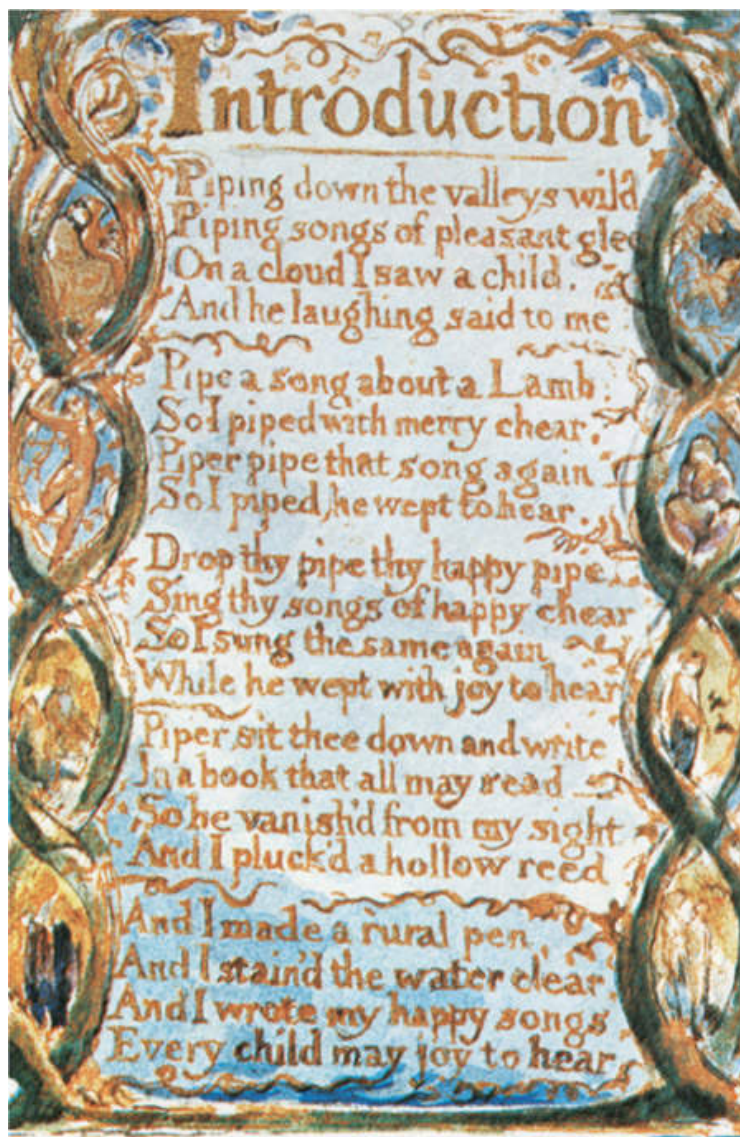 Introduction
Piping down the valleys wild
Piping songs of pleasant glee
On a cloud I saw a child.
And he laughing said to me
Pipe a song about a Lamb:
So I piped with merry chear,
Piper pipe that song again
So I piped, he wept to hear.
Drop thy pipe thy happy pipe
Sing thy songs of happy chear
So I sung the same again
While he wept with joy to hear
Piper sit thee down and write
In a book that all may read
So he vanish'd from my sight
And I pluck'd a hollow reed
And I made a rural pen,
And I stain'd the water clear
And I wrote my happy songs
Every child may joy to hear